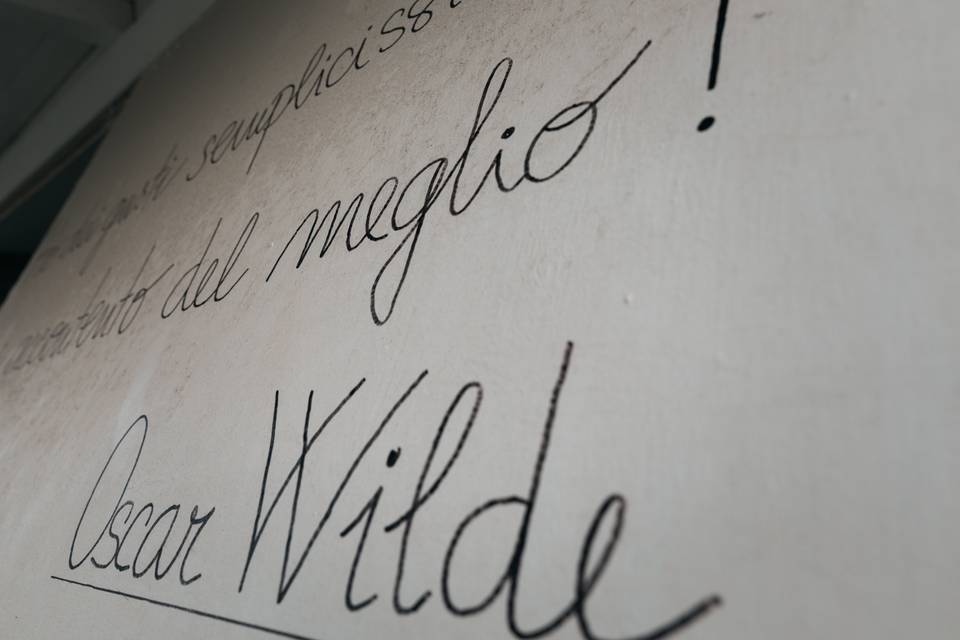 gusti sempliciss
accontento del meglio !
Oscar Wilde